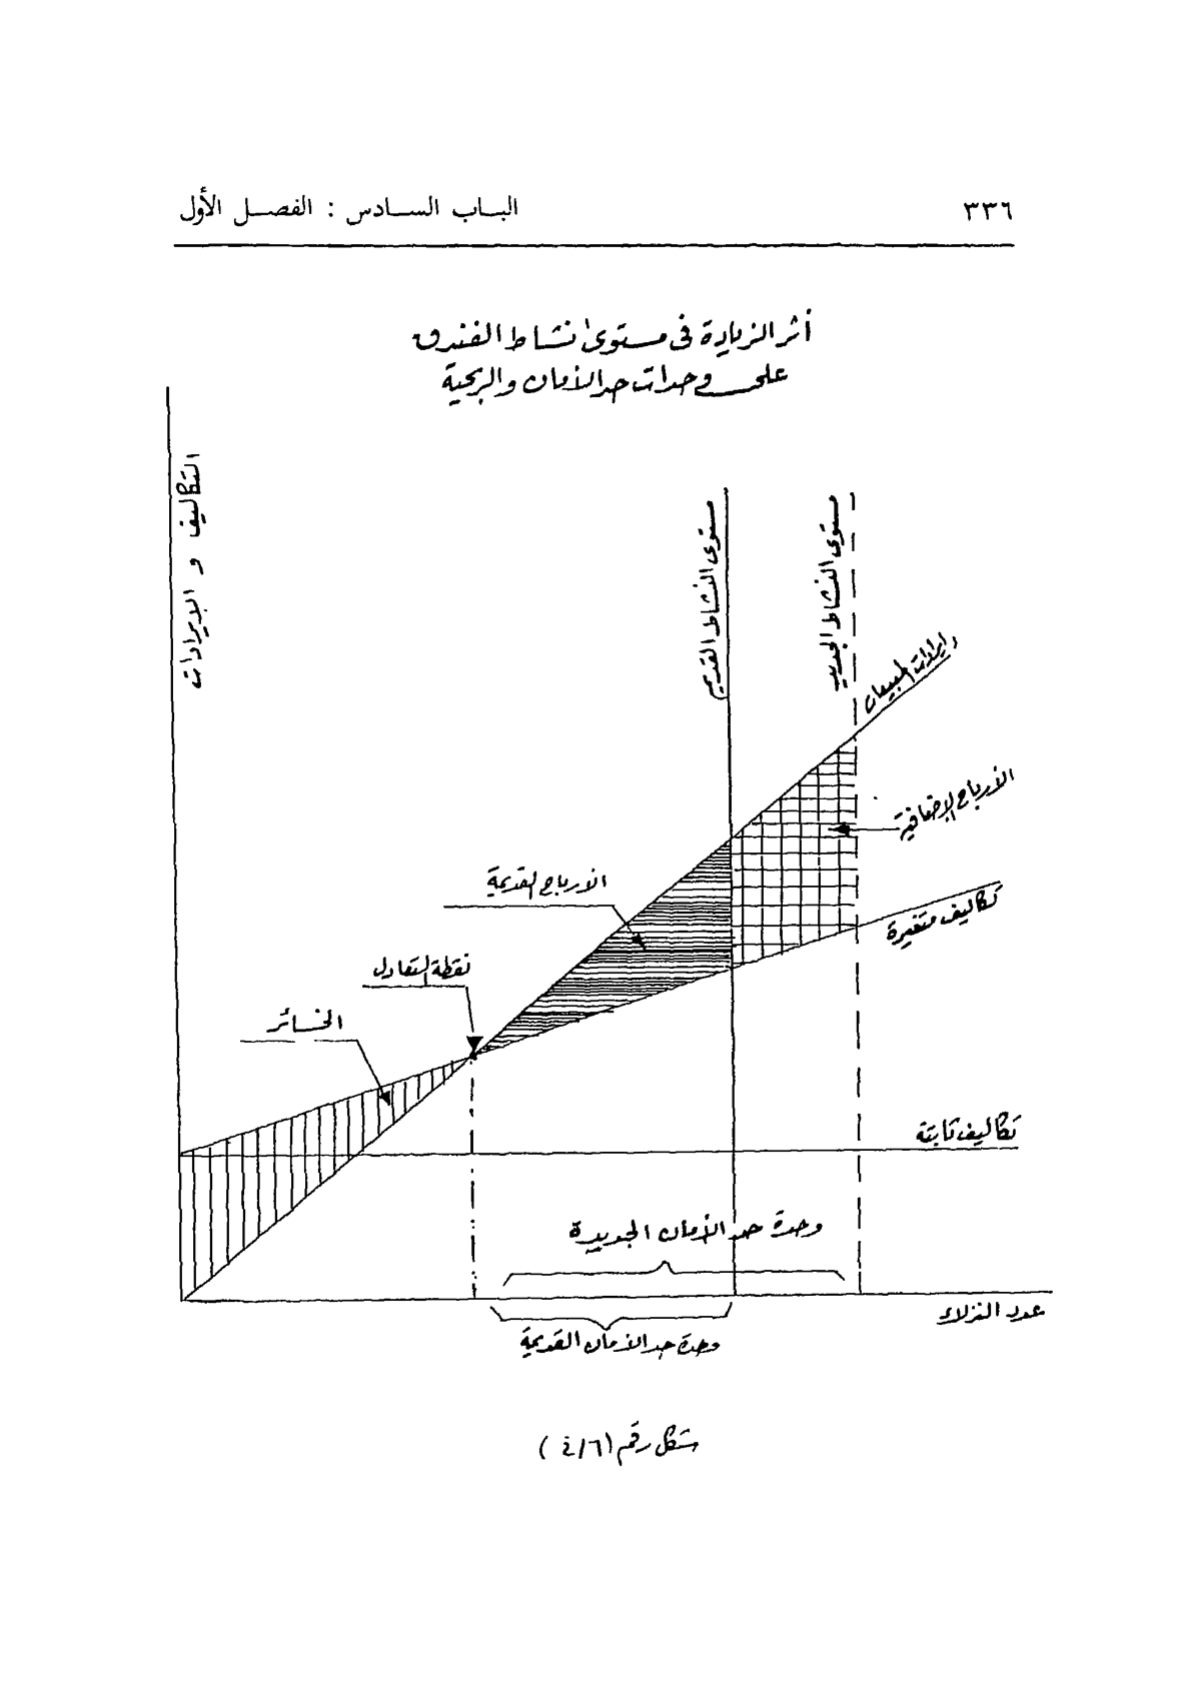 ٣٣٦
البـاب السـادس : الفصـل الأول
أثر الزيادة فى مستوى نشاط الفندق
على وحدات حد الأمان والربحية
التكاليف و الإيرادات
مستوى النشاط القديم
مستوى النشاط الجديد
إيرادات المبيعات
الأرباح الإضافية
الأرباح القديمة
تكاليف متغيرة
نقطة التعادل
الخسائر
تكاليف ثابتة
وحدة حد الأمان الجديدة
عدد النزلاء
وحدة حد الأمان القديمة
شكل رقم (٤/٦)